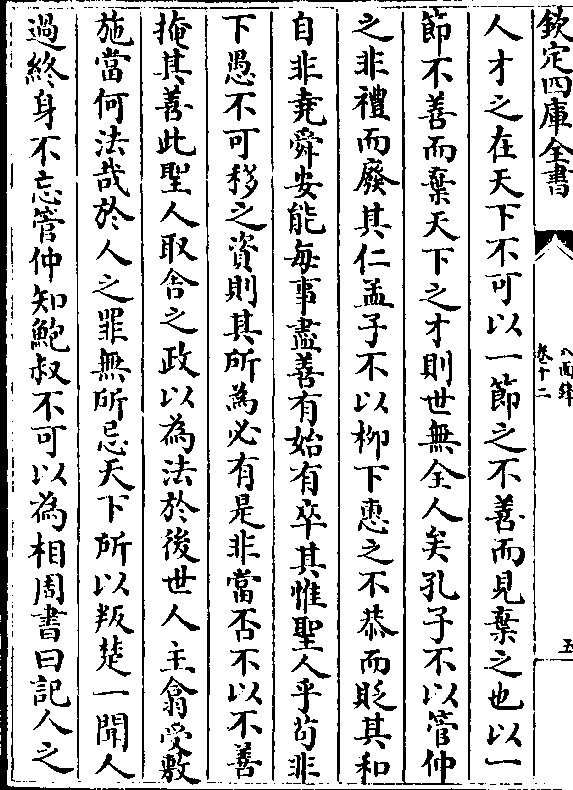 欽定四庫全書
八面鋒
卷十二
五
人才之在天下不可以一節之不善而見棄之也以一
節不善而棄天下之才則世無全人矣孔子不以管仲
之非禮而廢其仁孟子不以柳下惠之不恭而貶其和
自非堯舜安能每事盡善有始有卒其惟聖人乎茍非
下愚不可移之資則其所為必有是非當否不以不善
掩其善此聖人取舍之政以為法於後世人主翕受敷
施當何法哉於人之罪無所忌天下所以叛楚一聞人
過終身不忘管仲知鮑叔不可以為相周書曰記人之